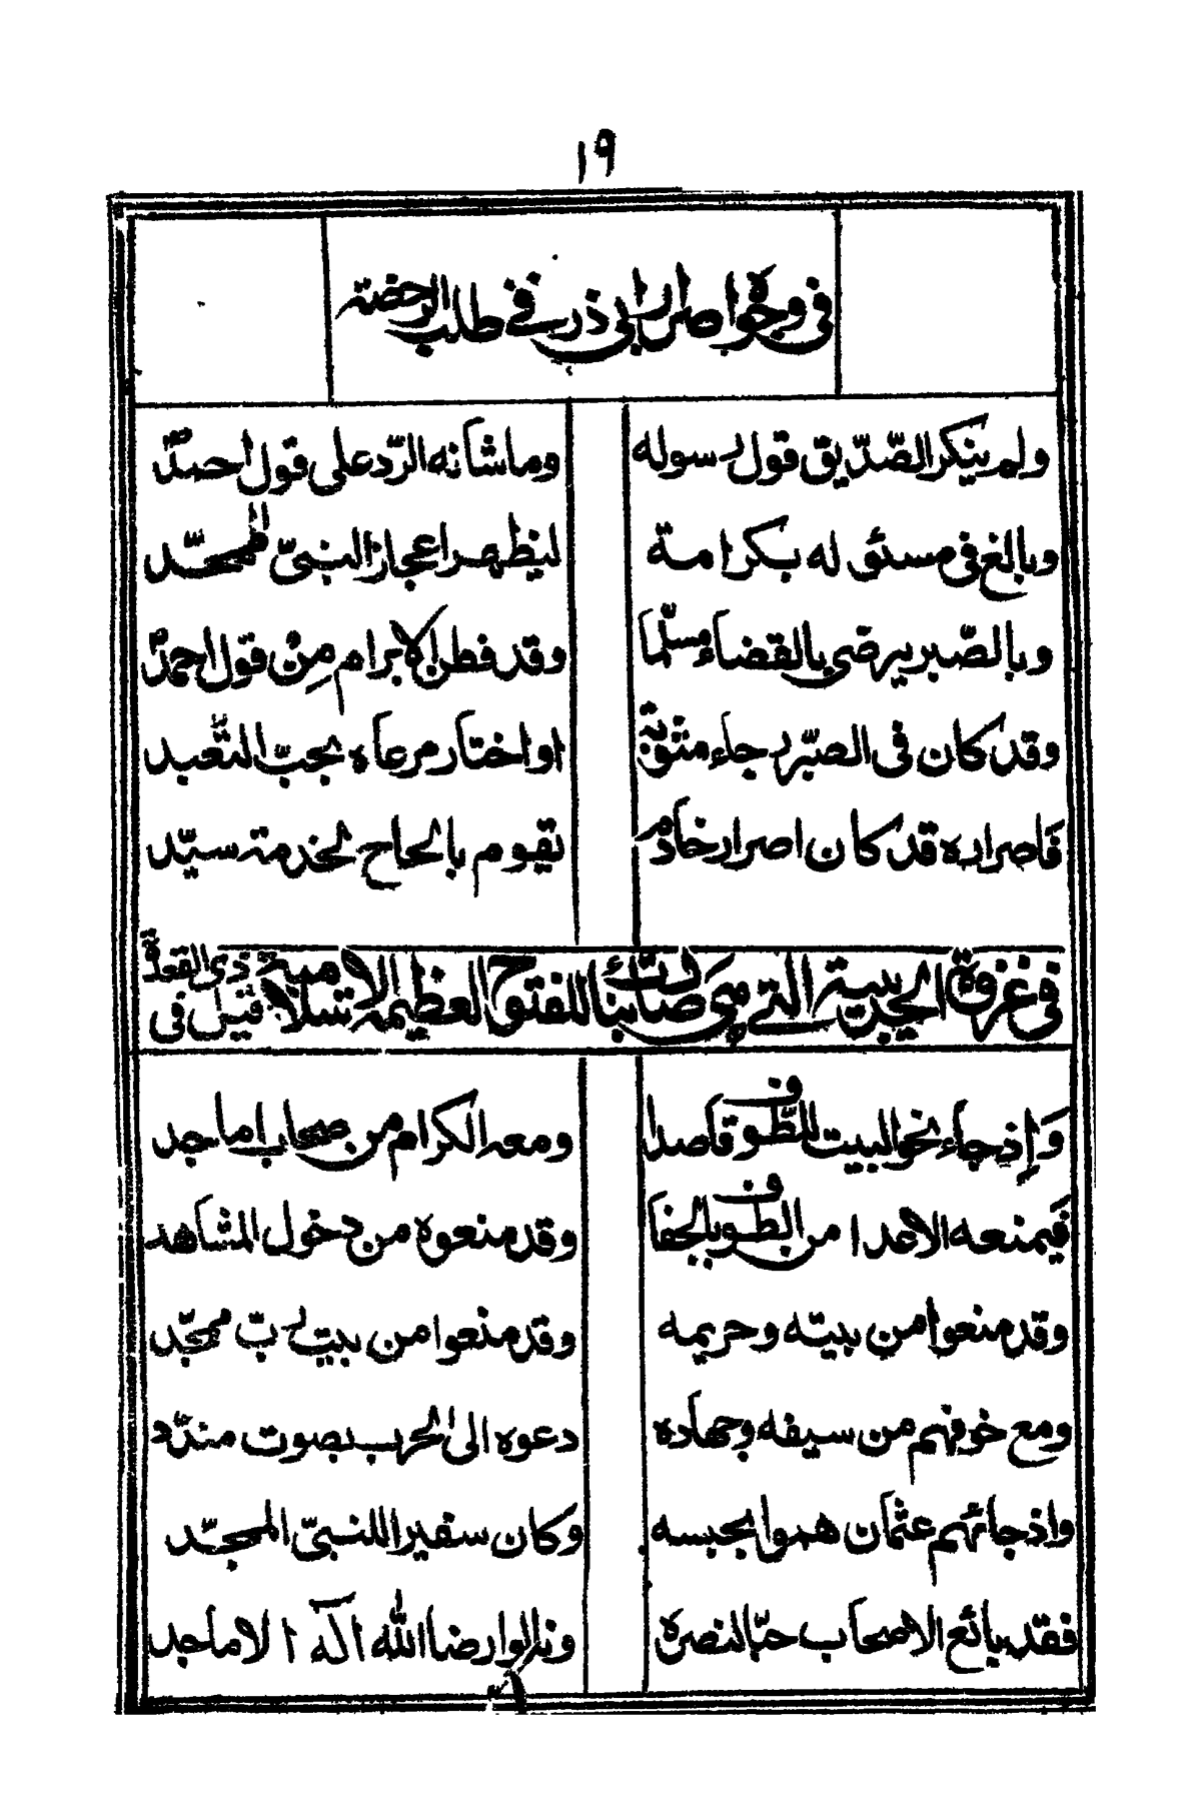 ١٩
في وجوه اصرار ابي ذر في طلب الرخصة
ولم ينكر الصّدّيق قول رسوله وما شانه الرّد على قول احمدٍ
وبالغ في مسئوله بكرامة ليظهر اعجاز النبيّ الممجّد
وبالصّبر يرضى بالقضاء مسلّما وقد فطن الابرام مِنْ قول احمدٍ
وقد كان في الصبّر رجاء مثوبة او اختار مرعاه بحبّ التّعبد
فاصراره قد كان اصرار خادم يقوم بالحاح لخدمة سيّد
في غزوة الحديبية التي هي صارت بابنا للفتوح العظيمة الاسلامية قيل في ذي القعدة
وَإِذ جاء نحو البيت للطّوف قاصدا ومعه الكرام من صحاب اماجد
فيمنعه الاعدا من الطوف بالجفا وقد منعوه من دخول المشاهد
وقد منعوا من بيته وحريمه وقد منعوا من بيت ربّ ممجّد
ومع خوفهم من سيفه وجهاده دعوه الى الحرب بصوت مندّد
واذ جائهم عثمان هموا بحبسه وكان سفيرا للنبيّ الممجّد
فقد بائع الاصحاب حبّا لنصره ونالوا رضا الله اله الاماجد